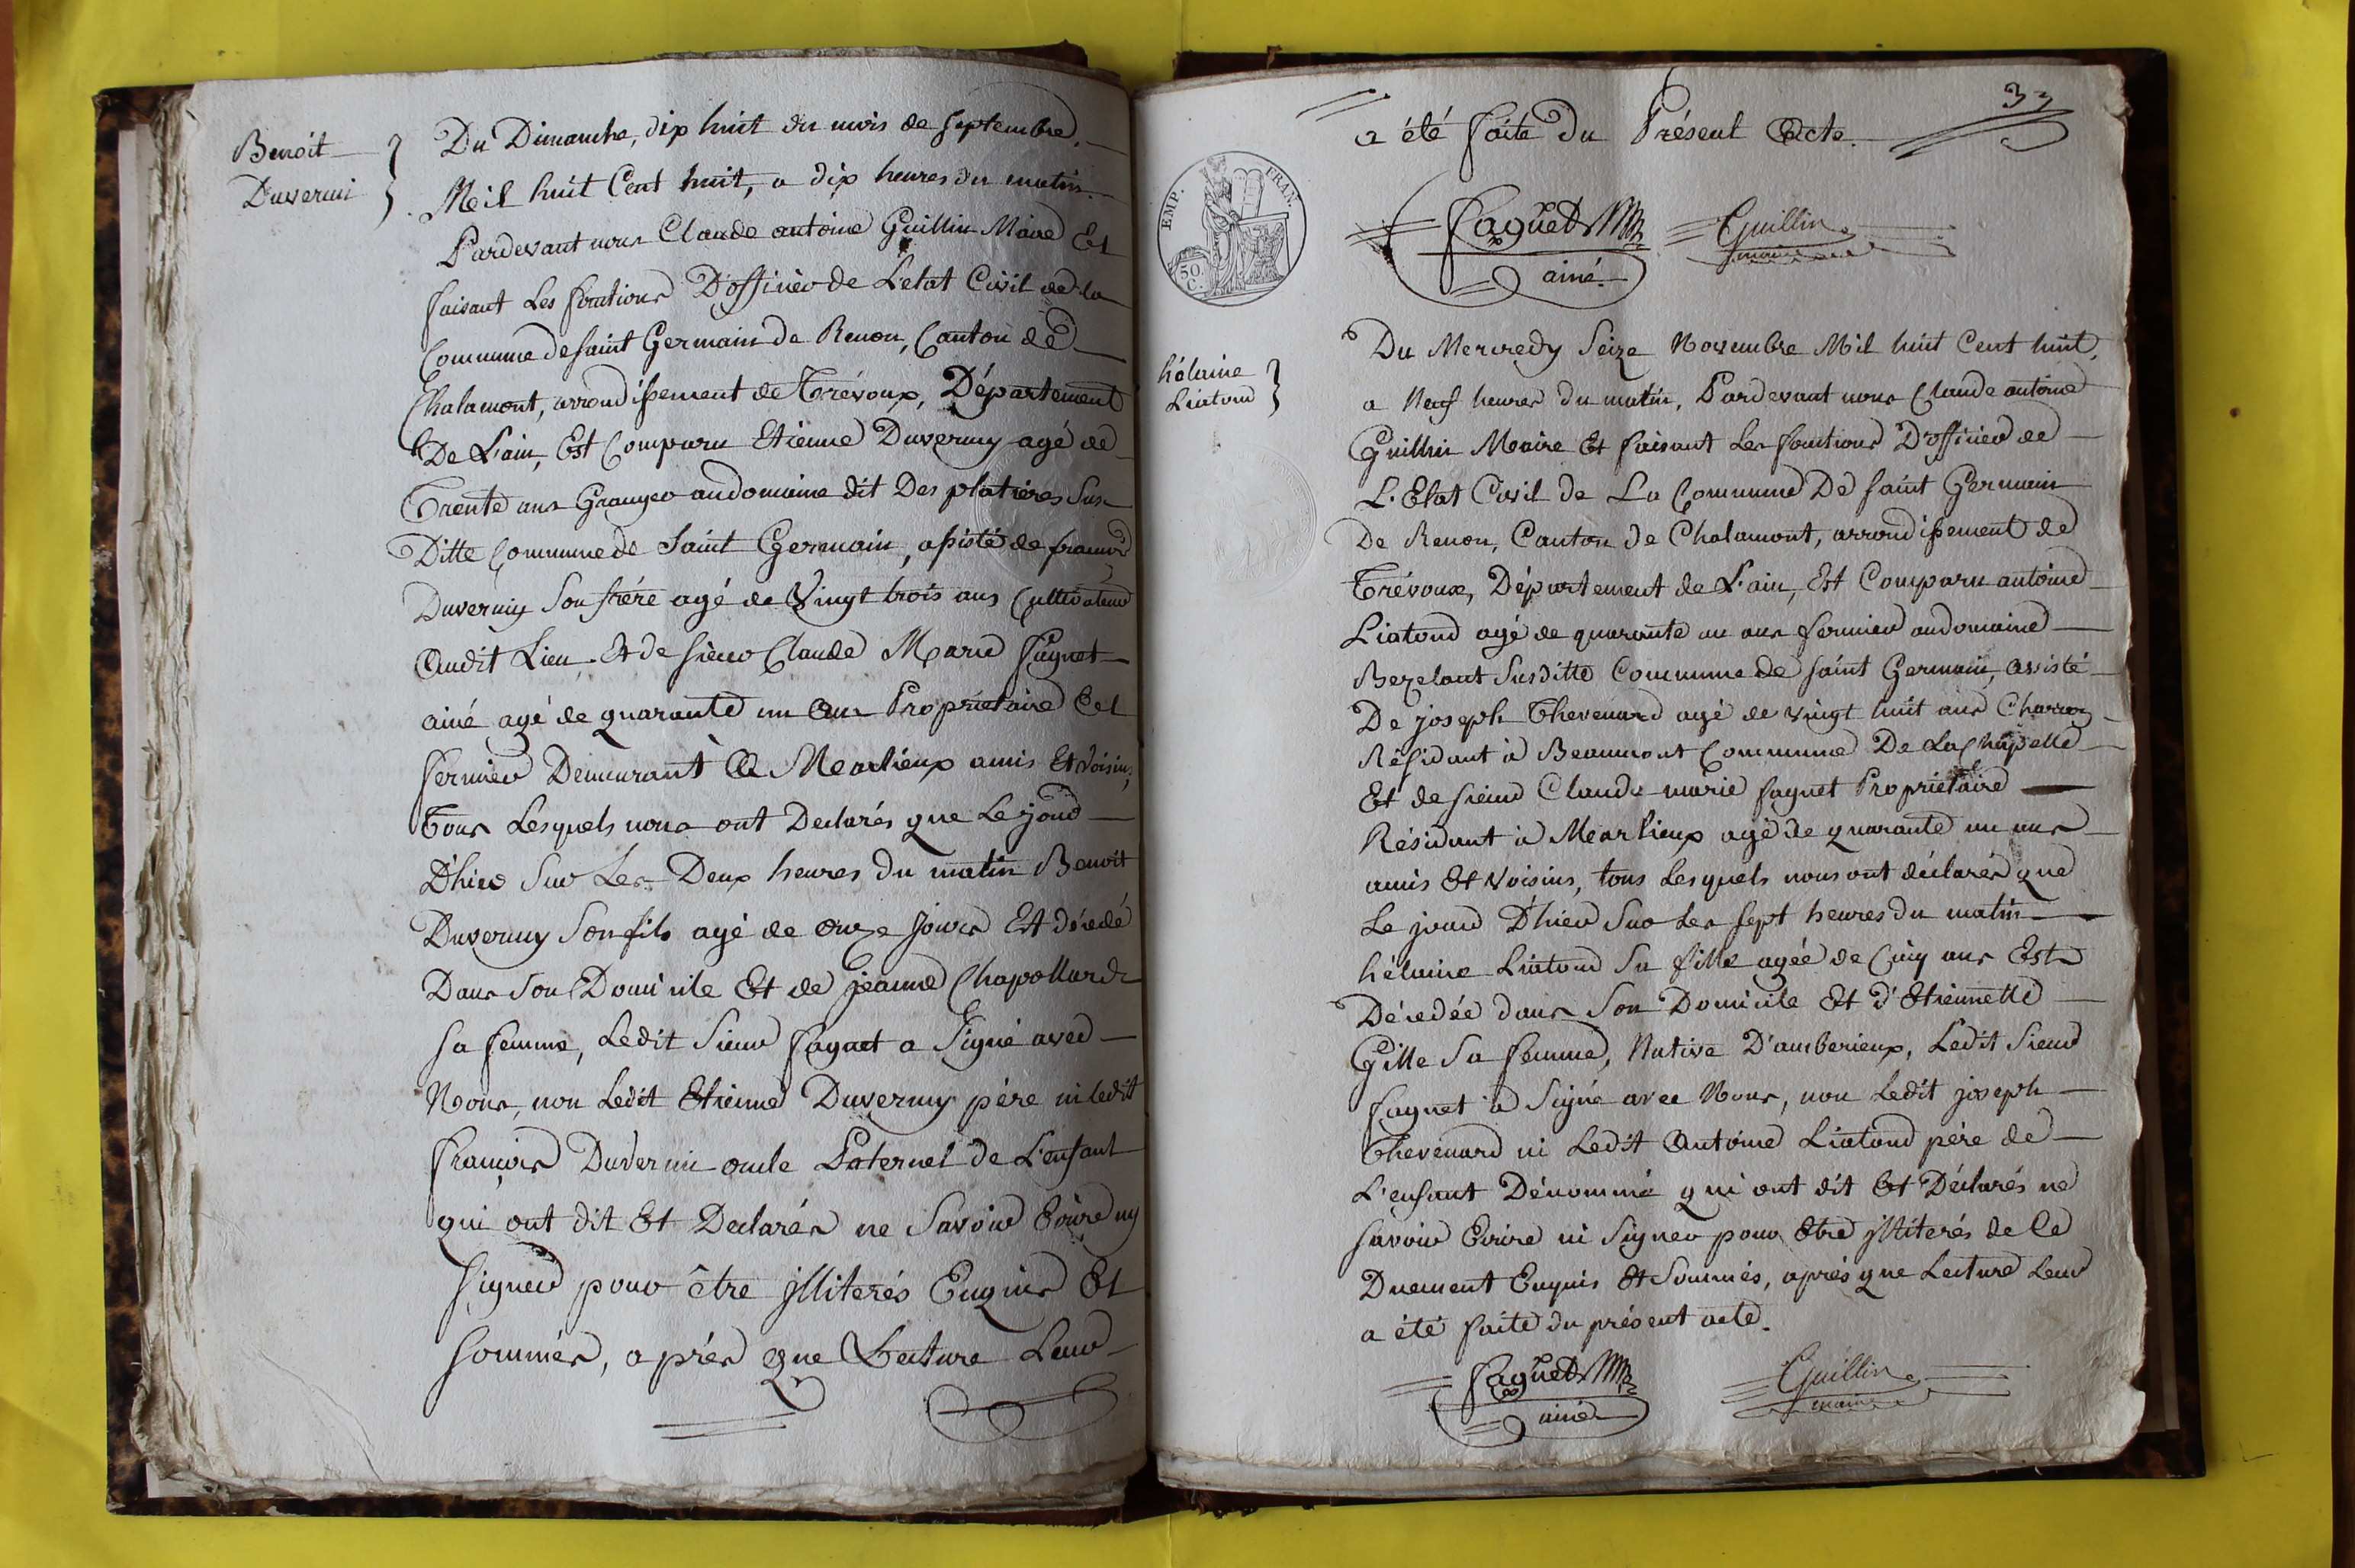 Benoit
Duverni
Du Dimanche, dix huit du mois de Septembre
Mil huit Cent huit, a dix heures du matin
Pardevant nous Claude antoine Guillin Maire Et
faisant Les fonctions D'officier de L'etat Civil de la
Commune de saint Germain de Renon, Canton de
Chalamont, arrondissement de Trévoux, Département
De L'ain, Est Comparu Etienne Duverny agé de
Trente ans Granger audomaine dit Des platières Sus
Ditte Commune de Saint Germain, assisté de francois
Duverniy Son frére agé de Vingt trois ans Cultivateur
Audit Lieu Et de sieur Claude Marie faguet
ainé agé de quarante un ans Propriétaire Et
fermier Demeurant A Marlieux amis Et Voisin,
Tous Lesquels nous ont Declarés que Le jour
D'hier Sur Les Deux heures Du matin Benoit
Duverny Son fils agé de onze jours Est décedé
Dans Son Domicile Et de jeanne Chapolard
Sa femme, Ledit Sieur faguet a Signé avec
Nous, non Ledit Etienne Duverny pére ni ledit
francois Duverni oncle Paternel de L'enfant
qui ont dit Et Declarés ne Savoir Ecrire ny
Signer pour être jlliterés Enquis Et
Sommés, aprés que Lecture Leur
33
a été faite Du Présent Acte.
EMP. FRAN.
50 C.
Faguet
ainé
Guillin
maire
hélaine
Liatoud
Du Mercredy Seize Novembre Mil huit Cent huit,
a Neuf heures du matin, Pardevant nous Claude antoine
Guillin Maire Et faisant Les fonctions D'officier de
L'Etat Civil de La Commune De Saint Germain
De Renon, Canton de Chalamont, arrondissement de
Trévoux, Département de L'ain, Est Comparu antoine
Liatoud agé de quarante un ans fermier audomaine
Bezelant Susditte Commune de Saint Germain, assisté
De joseph Thevenard agé de vingt huit ans Charron
Résidant à Beaumont Commune De La Chapelle
Et de sieur Claude marie faguet Propriétaire
Résidant à Marlieux agé de quarante un ans
amis Et Voisins, tous Lesquels nous ont déclarés que
Le jour D'hier Sur Les Sept heures Du matin
hélaine Liatoud Sa fille agée de Cinq ans Est
Décedée dans Son Domicile Et d'Etiennette
Gille Sa femme, Native D'amberieux, Ledit Sieur
faguet a Signé avec Nous, non Ledit joseph
Thevenard ni Ledit Antoine Liatoud pére de
L'enfant Dénommé qui ont dit Et Déclarés ne
Savoir Ecrire ni Signer pour Etre jlliterés de Ce
Duement Enquis Et Sommés, aprés que Lecture Leur
a été faite du présent acte.
Faguet
ainé
Guillin
maire